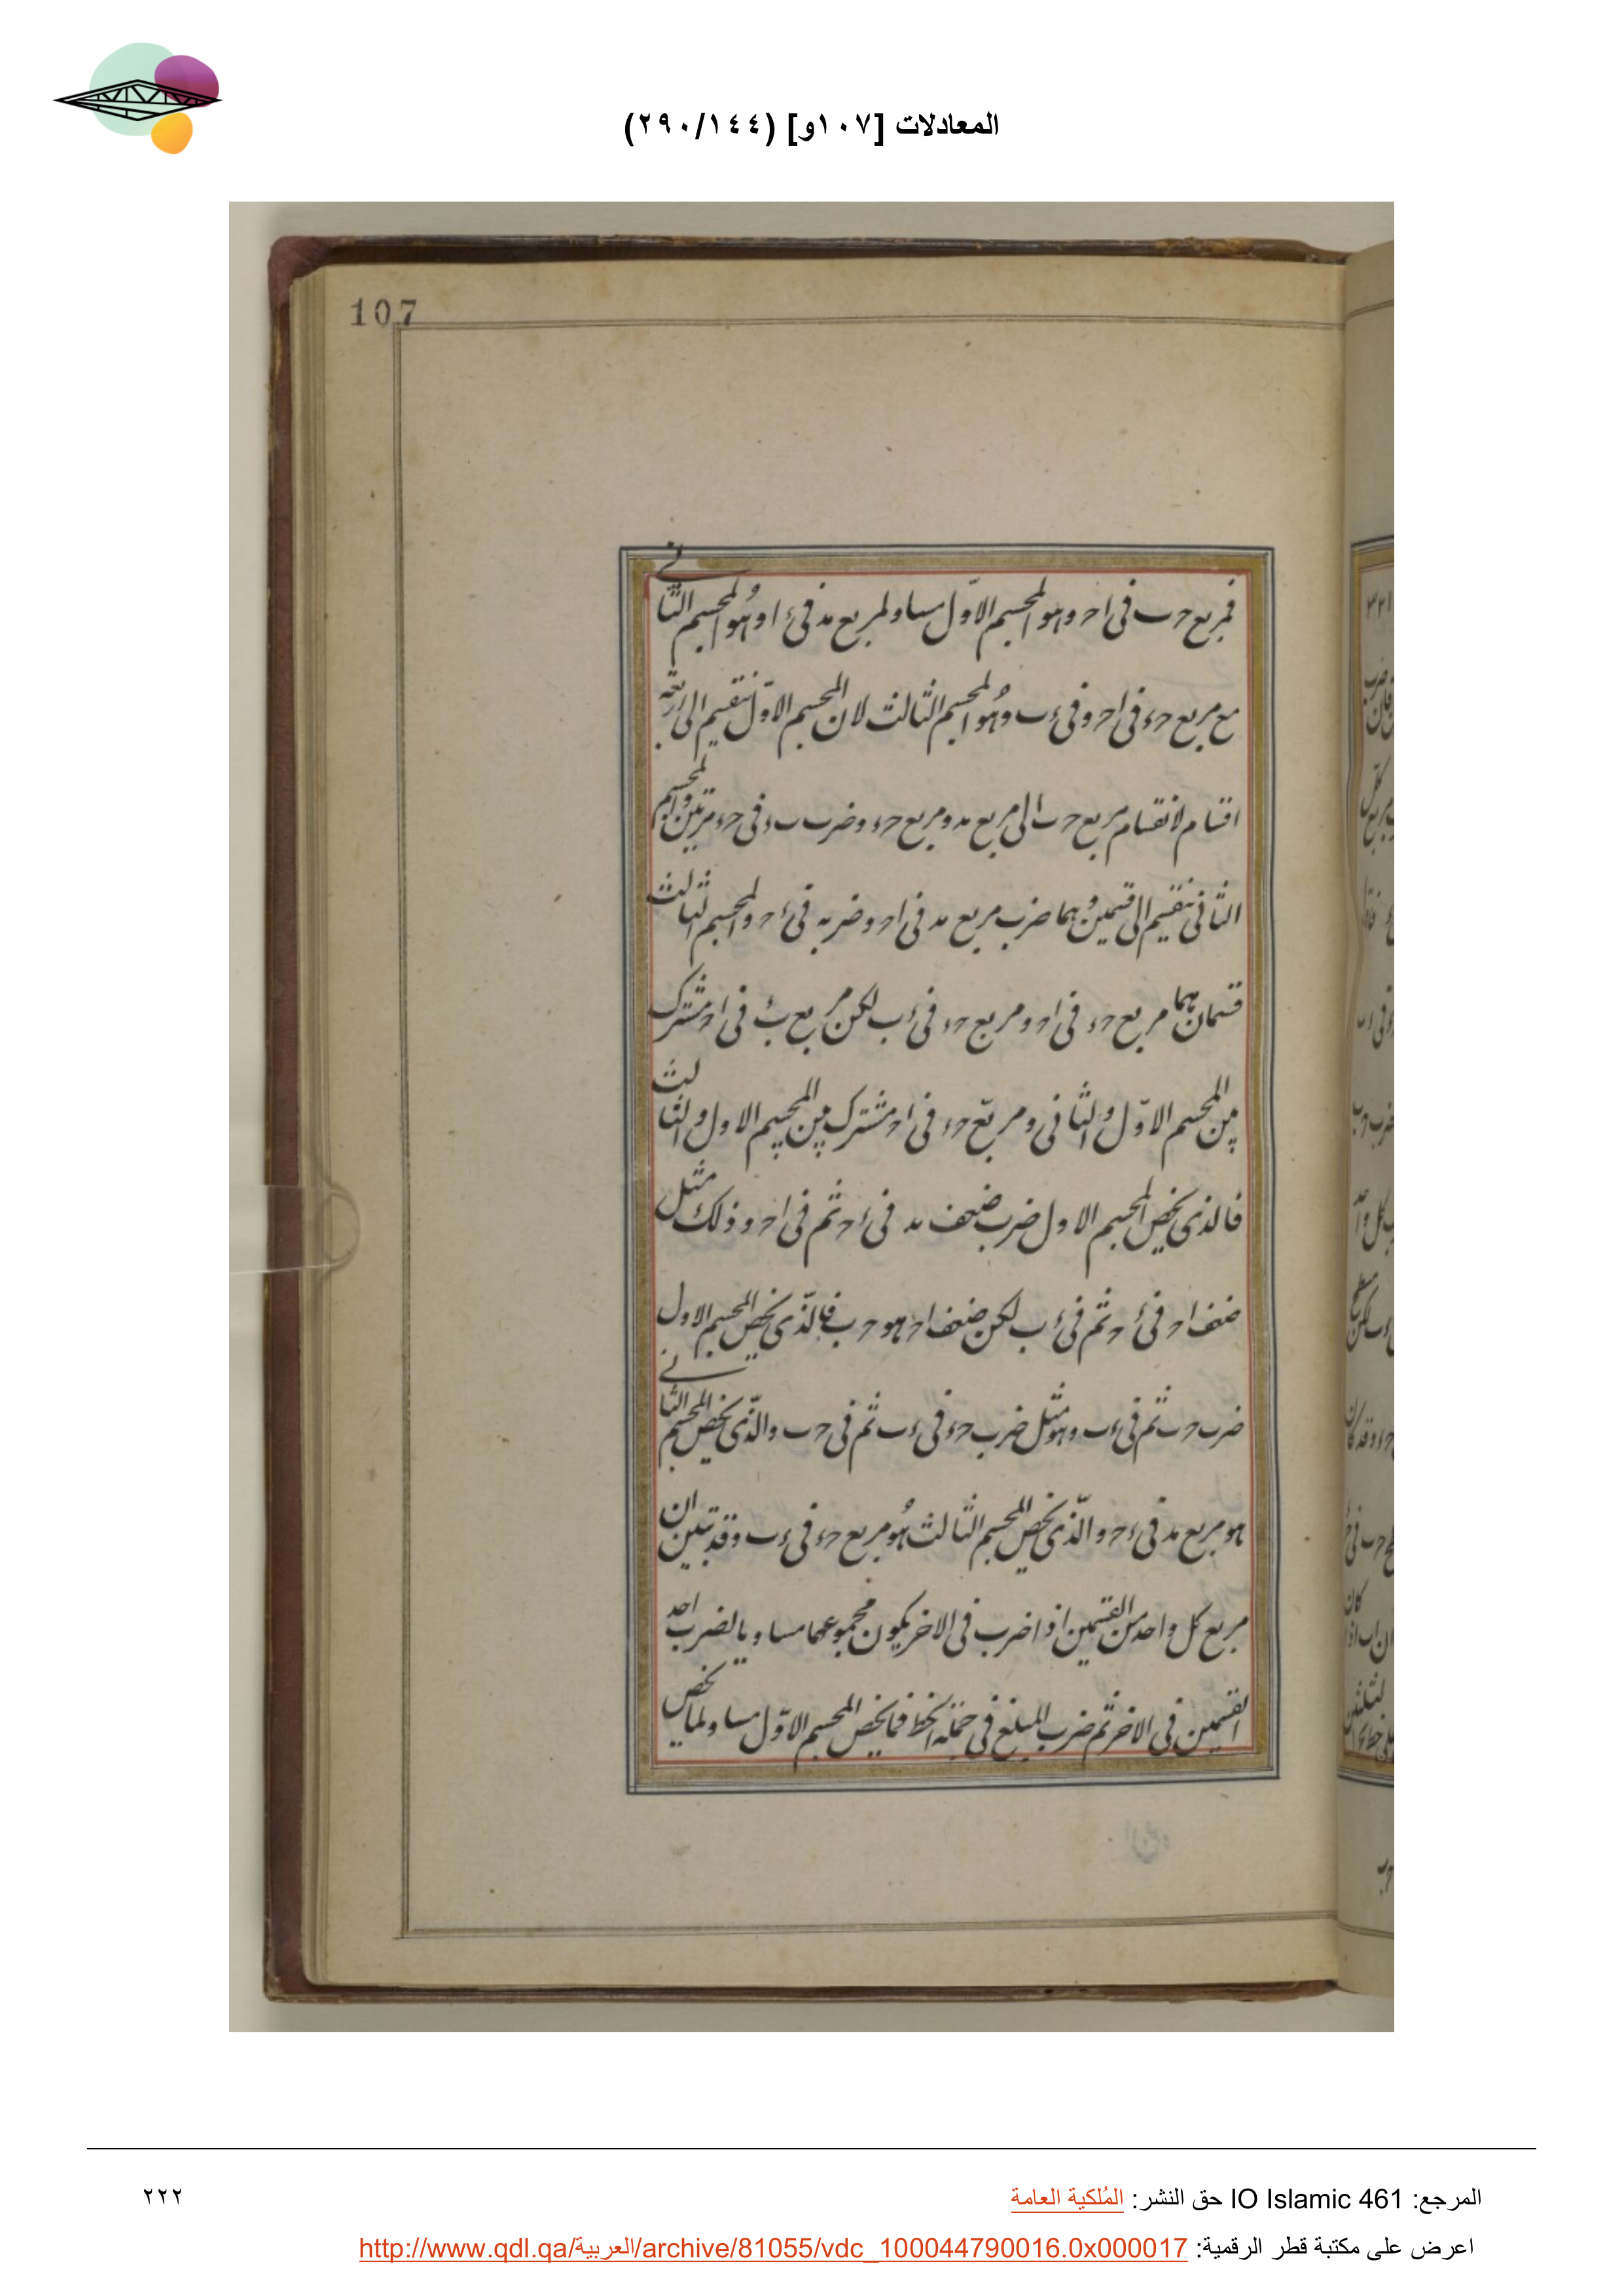 المعادلات [١٠٧و] (٢٩٠/١٤٤)
107
فمربع حب في اح وهو المجسم الاوّل مساو لمربع مد في ءا وهُو المجسم الثاني
مع مربع حء في اح وفي ءب وهُو المجسم الثالث لان المجسم الاوّل ينقسم الى اربعة
اقسام لانقسام مربع حب الى مربع مد ومربع حء وضرب بء في حء مرتين والمجسم
الثاني ينقسم الى قسمين وهما ضرب مربع مد في اح وضربه في ءح والمجسم الثالث
قسمان هما مربع حء في اح ومربع حء في ءب لكن مربع بء في اح مشترك
بين المجسم الاوّل والثاني ومربع حء في اح مشترك بين المجسم الاول والثالث
فالذي يخص المجسم الاول ضرب ضعف مد في ءح ثم في اح وذلك مثل
ضعف اح في ءح ثم في ءب لكن ضعف اح هو حب فالّذي يخص المجسم الاول
ضرب حب ثم في ءب وهو مثل ضرب حء في ءب ثم في حب والّذي يخص المجسم الثاني
هو مربع مد في ءح والّذي يخص المجسم الثالث هُو مربع حء في ءب وقد تبين ان
مربع كل واحد من القسمين اذا ضرب في الاخر يكون مجموعهما مساويا لضرب احد
القسمين في الاخر ثم ضرب المبلغ في جملة الخط فما يخص المجسم الاوّل مساو لما يخص
المرجع: IO Islamic 461 حق النشر: المُلكية العامة
٢٢٢
اعرض على مكتبة قطر الرقمية: http://www.qdl.qa/العربية/archive/81055/vdc_100044790016.0x000017